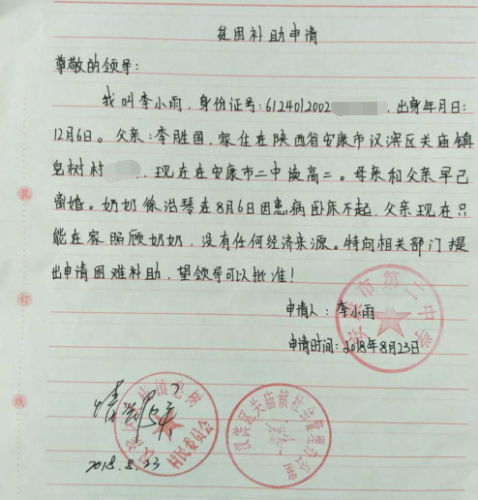 贫困补助申请
尊敬的领导:
我叫李小雨,身份证号:6124012002,出身年月日:
12月6日。父亲:李胜国,家住在陕西省安康市汉滨区关庙镇
皂树村,现在在安康市二中读高二。母亲和父亲早已
离婚。奶奶徐沿琴在8月6日因患病卧床不起,父亲现在只
能在家照顾奶奶,没有任何经济来源。特向相关部门提
出申请困难补助,望领导可以批准!
申请人:李小雨
申请时间:2018年8月23日
市第二中学
情况属实
2018.8.23
村民委员会
汉滨区关庙镇社会
装
订
线